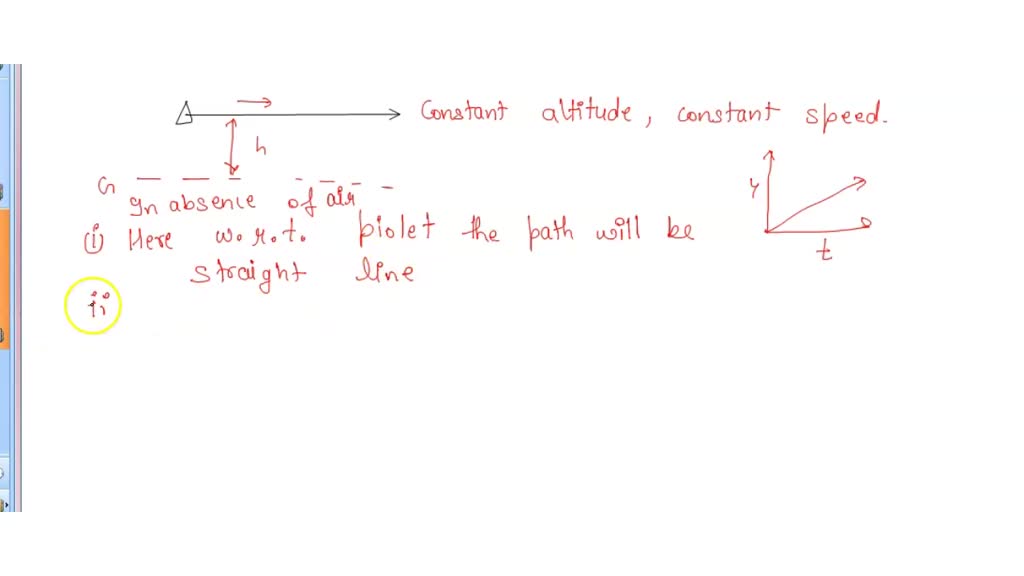 Constant altitude, constant speed.
h
G
In absence of air
(i) Here w.r.t. piolet the path will be
straight line
ii
y
t